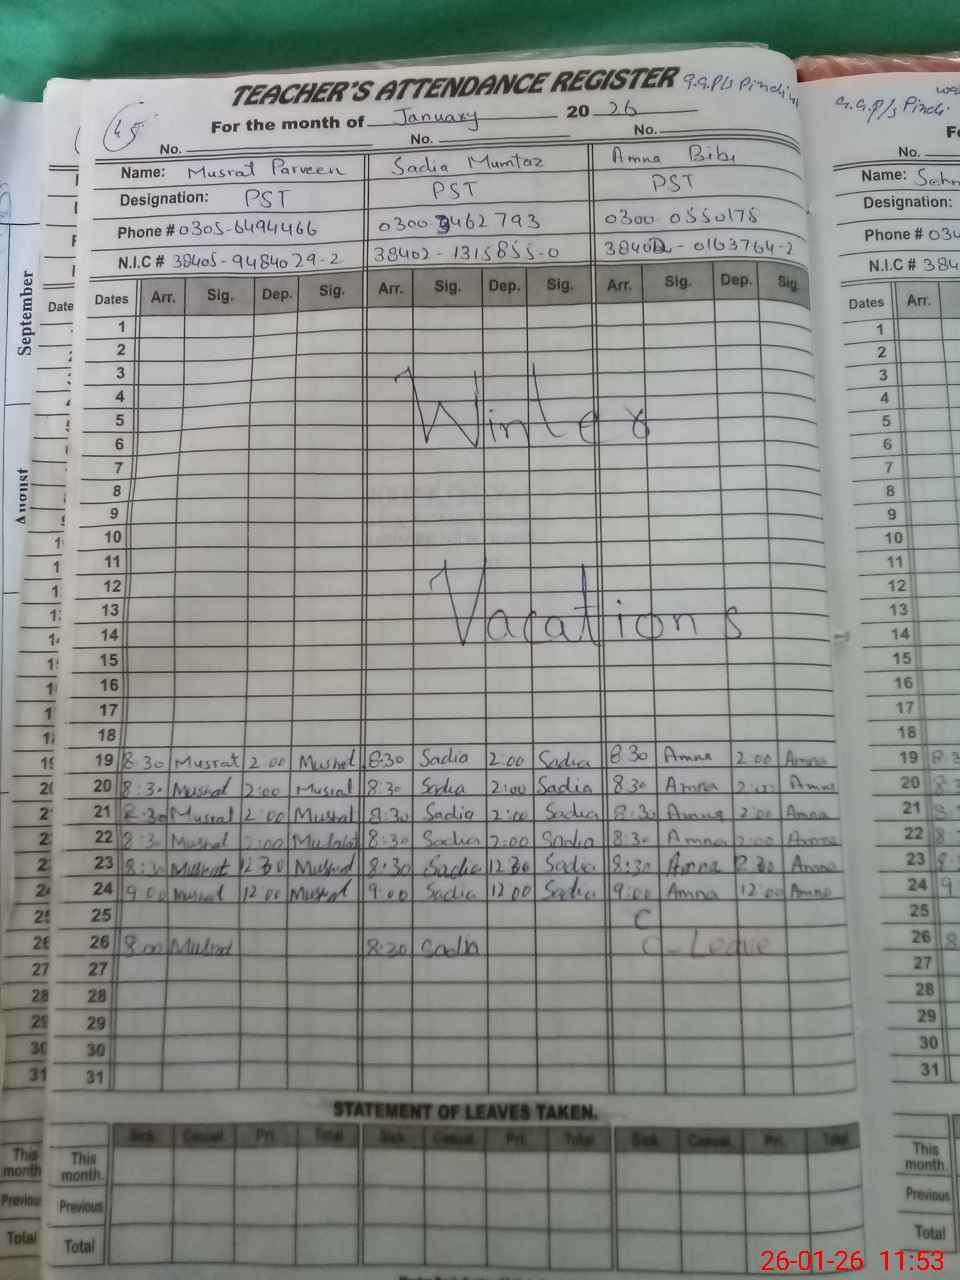 TEACHER'S ATTENDANCE REGISTER
For the month of January 2026
No. No. No.
Name: Musrat Parveen Sadia Mumtaz Amna Bibi
Designation: PST PST PST
Phone # 0305-6494466 0300 3462793 0300 0550175
N.I.C # 38405-9484029-2 38402-1315855-0 38402-0163764-2
Dates Arr. Sig. Dep. Sig. Arr. Sig. Dep. Sig. Arr. Sig. Dep. Sig.
1
2
3
4
5
6
7
8
9
10
11
12
13
14
15
16
17
18
Winter
Vacations
19 8:30 Musrat 2:00 Musrat 8:30 Sadia 2:00 Sadia 8:30 Amna 2:00 Amna
20 8:30 Musrat 2:00 Musrat 8:30 Sadia 2:00 Sadia 8:30 Amna 2:00 Amna
21 8:30 Musrat 2:00 Musrat 8:30 Sadia 2:00 Sadia 8:30 Amna 2:00 Amna
22 8:30 Musrat 2:00 Musrat 8:30 Sadia 2:00 Sadia 8:30 Amna 2:00 Amna
23 8:30 Musrat 12:30 Musrat 8:30 Sadia 12:30 Sadia 8:30 Amna 12:30 Amna
24 9:00 Musrat 12:00 Musrat 9:00 Sadia 12:00 Sadia 9:00 Amna 12:00 Amna
25 C
26 8:00 Musrat 8:30 Sadia C-Leave
27
28
29
30
31
STATEMENT OF LEAVES TAKEN.
Sick. Casual. Pri. Total Sick. Casual. Pri. Total Sick. Casual. Pri. Total
This month.
Previous
Total
September
August
No.
Name:
Designation:
Phone # 034
N.I.C # 384
Dates Arr.
1
2
3
4
5
6
7
8
9
10
11
12
13
14
15
16
17
18
19
20
21
22
23
24
25
26
27
28
29
30
31
This month.
Previous
Total
26-01-26 11:53